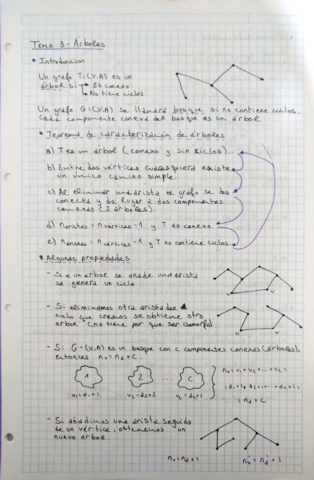 Tema 3 - Árboles
• Introduccion
Un grafo T=(V,A) es un
árbol si Es conexo
No tiene ciclos
Un grafo G=(V,A) se llamará bosque si no contiene ciclos.
Cada componente conexa del bosque es un árbol
• Teorema de caracterización de árboles
a) T es un árbol (conexo y sin ciclos)
b) Entre dos vértices cualesquiera existe
un único camino simple.
c) Al eliminar una arista el grafo se des
conecta y da lugar a dos componentes
conexas (2 árboles)
d) naristas = nvértices -1 y T es conexo
e) naristas = nvértices -1 y T no contiene ciclos
• Algunas propiedades
- Si a un árbol se añade una arista
se genera un ciclo
- Si eliminamos otra arista del
ciclo que creamos se obtiene otro
árbol (no tiene por que ser isomorfo)
u v
u v
- Si G=(V,A) es un bosque con c componentes conexas (árboles),
entonces nv = na + c.
1 2 ... c
v1 = a1 + 1 v2 = a2 + 1 vc = ac + 1
nv = v1 + v2 + ... + vc =
= a1 + 1 + a2 + 1 + ... + ac + 1 =
= na + c
- Si añadimos una arista seguida
de un vértice, obtenemos un
nuevo árbol.
nv = na + 1 nv' = na' + 1